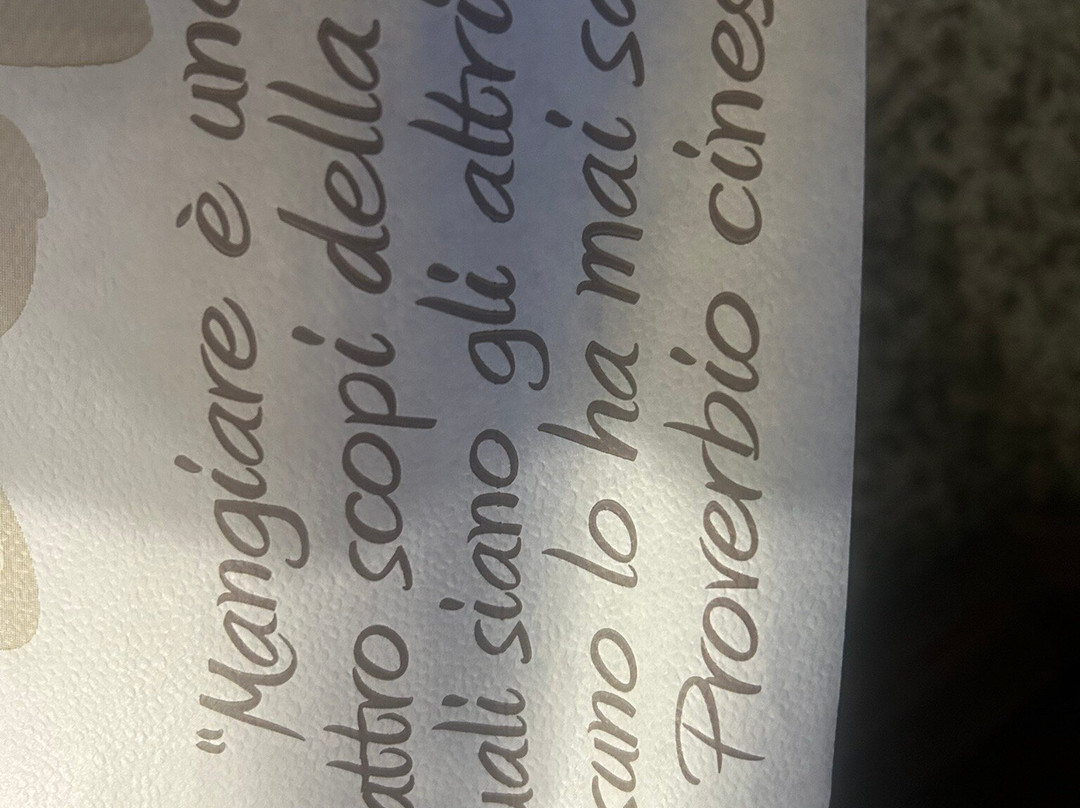 "Mangiare è una
attro scopi della
uali siano gli altri
suno lo ha mai sa
Proverbio cines